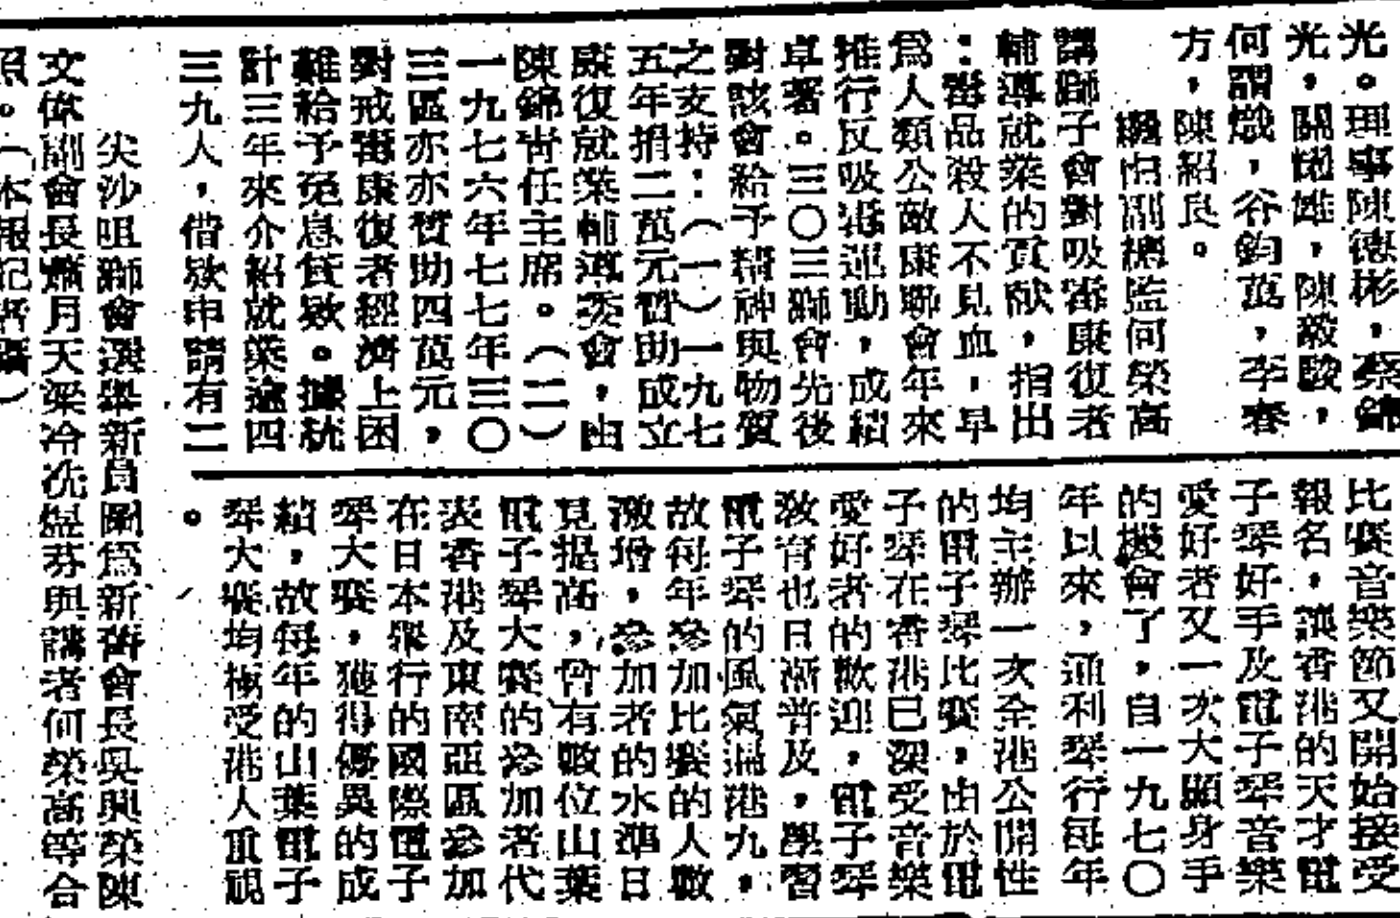 光。理事陳德彬，蔡錦
光，關鎚雄，陳毅駿，
何謂熾，谷鈞萬，李春
方，陳紹良。
繼由副總監何榮高
講獅子會對吸毒康復者
輔導就業的貢献，指出
：毒品殺人不見血，早
爲人類公敵康聯會年來
推行反吸毒運動，成績
卓著。三〇三獅會先後
對該會給予精神與物質
之支持：（一）一九七
五年捐二萬元贊助成立
康復就業輔導委會，由
陳錦靑任主席。（二）
一九七六年七七年三〇
三區亦亦贊助四萬元，
對戒毒康復者經濟上困
難給予免息貸欵。據統
計三年來介紹就業逾四
三九人，借欵申請有二
尖沙咀獅會選舉新員圖爲新舊會長吳興榮陳
文偉副會長蕭月天梁冷冼煜芬與講者何榮高等合
照。（本報記者攝）
比賽音樂節又開始接受
報名，讓香港的天才電
子琴好手及電子琴音樂
愛好者又一次大顯身手
的機會了，自一九七〇
年以來，通利琴行每年
均主辦一次全港公開性
的電子琴比賽，由於電
子琴在香港已深受音樂
愛好者的歡迎，電子琴
敎育也日漸普及，學習
電子琴的風氣遍港九，
故每年參加比賽的人數
激增，參加者的水準日
見提高，曾有數位山葉
電子琴大賽的參加者代
表香港及東南亞區參加
在日本舉行的國際電子
琴大賽，獲得優異的成
績，故每年的山葉電子
琴大賽均極受港人重視
。